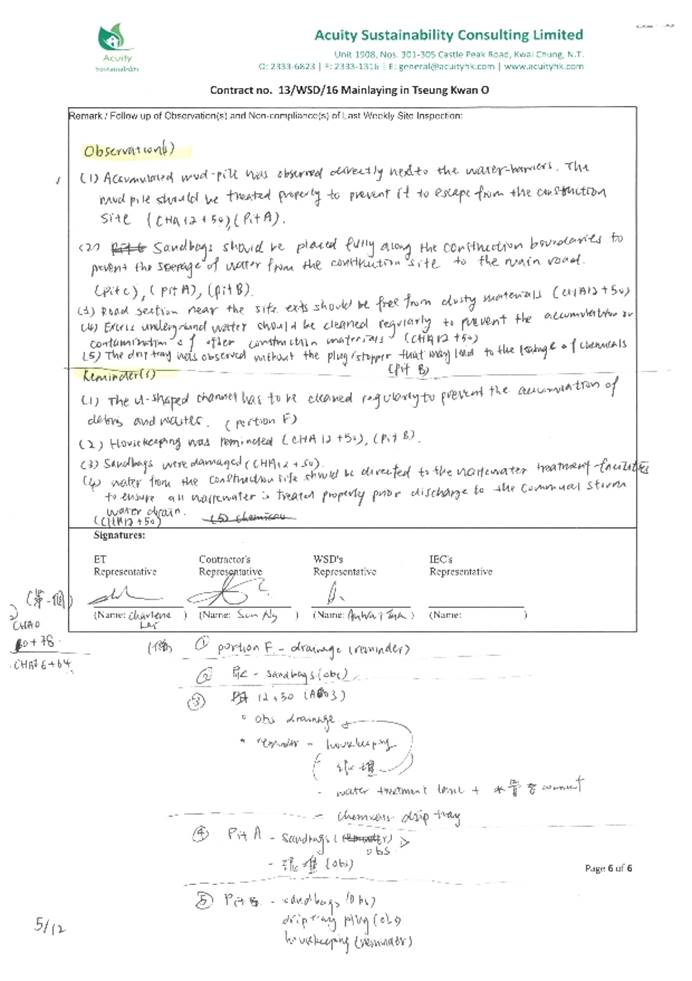 Acuity Sustainability Consulting Limited
Unit 1908, Nos. 301-305 Castle Peak Road, Kwai Chung, N.T.
O: 2333-6823 | F: 2333-1316 | E: general@acuityhk.com | www.acuityhk.com
Acuity
Sustainability
Contract no. 13/WSD/16 Mainlaying in Tseung Kwan O
Remark / Follow up of Observation(s) and Non-compliance(s) of Last Weekly Site Inspection:
Observation(s)
(1) Accumulated mud-pile was observed directly next to the water-barriers. The
mud pile should be treated properly to prevent it to escape from the construction
site (CHA 12+50) (Pit A).
(2) Sandbags should be placed fully along the construction boundaries to
prevent the seepage of water from the construction site to the main road.
(Pit C), (Pit A), (Pit B).
(3) Road section near the site exits should be free from dusty materials (CHA12+50)
(4) Excess underground water should be cleaned regularly to prevent the accumulation or
contamination of other construction materials (CHA 12+50)
(5) The drip tray was observed without the plug/stopper that may lead to the leakage of chemicals
(Pit B)
Reminder(s)
(1) The U-shaped channel has to be cleaned regularly to prevent the accumulation of
debris and wastes. (Portion F)
(2) Housekeeping was reminded (CHA 12+50), (Pit B).
(3) Sandbags were damaged (CHA12+50).
(4) water from the construction site should be directed to the wastewater treatment facilities
to ensure all wastewater is treated properly prior discharge to the communal storm
water drain.
(CHA12+50)
(5) chemical
Signatures:
ET
Representative
Contractor's
Representative
WSD's
Representative
IEC's
Representative
(Name: Charlene )
(Name: Sun Ng )
(Name: )
(Name: )
CHA0
CHA76+64
① portion F - drainage (reminder)
② Pit C - sandbags (obs)
③ 12+50
• obs drainage
• reminder - housekeeping
- water treatment level +
- chemicals drip tray
④ Pit A - sandbags
obs
- (obs)
⑤ Pit B - sandbags (obs)
drip tray plug (obs)
housekeeping (reminder)
Page 6 of 6
5/12